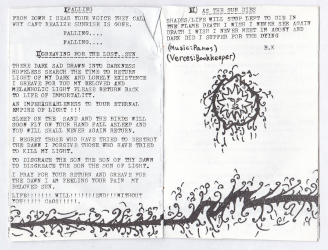 FALLING
FROM DOWN I HEAR YOUR VOICE THEY CALL
WHY CANT REALIZE SUNRISE IS GONE.
FALLING....
FALLING....
GREAVING FOR THE LOST SUN
THERE DARK SAD DRAWN INTO DARKNESS
HOPELESS SEARCH THE TIME TO RETURN
LIGHT OF MY DARK AND LONELY EXISTENCE
I GREAVE FOR YOU MY BELOVED AND
MELANHOLIC LIGHT PLEASE RETURN BACK
TO LIFE OF IMMORTALITY.
AN TO YOUR ETERNAL
EMPIRE OF LIGHT !!!
SLEET ON THE SAND AND THE BIRDS WILL
SOON FLY ON YOUR HAND FALL ASLEEP AND
YOU WILL SHALL NEVER AGAIN RETURN.
I REGRET THOSE WHO HAVE TRIED TO DESTROY
THE DAWN I FORGIVE THOSE WHO HAVE TRIED
TO KILL MY LIGHT.
TO DISGREACH THE SON THE SON OF THY DAWN
TO DISGREACH THE SON THE SON OF LIGHT.
I PRAY FOR YOUR RETURN AND GREAVE FOR
THE DAWN I AM FEELING YOUR PAIN MY
BELOVED SUN.
AS THE SUN DIES
SHADES/LIFE WILL STOP LEFT TO DIE IN
THE FLAME DEATH I WISH I NEVER SEE AGAIN
DEATH I WISH I NEVER MEET IM AGONY AND
DARK DID I SUFFER FOR THE DYING
B.K
(Music:Panos)
(Verces:Bookkeeper)